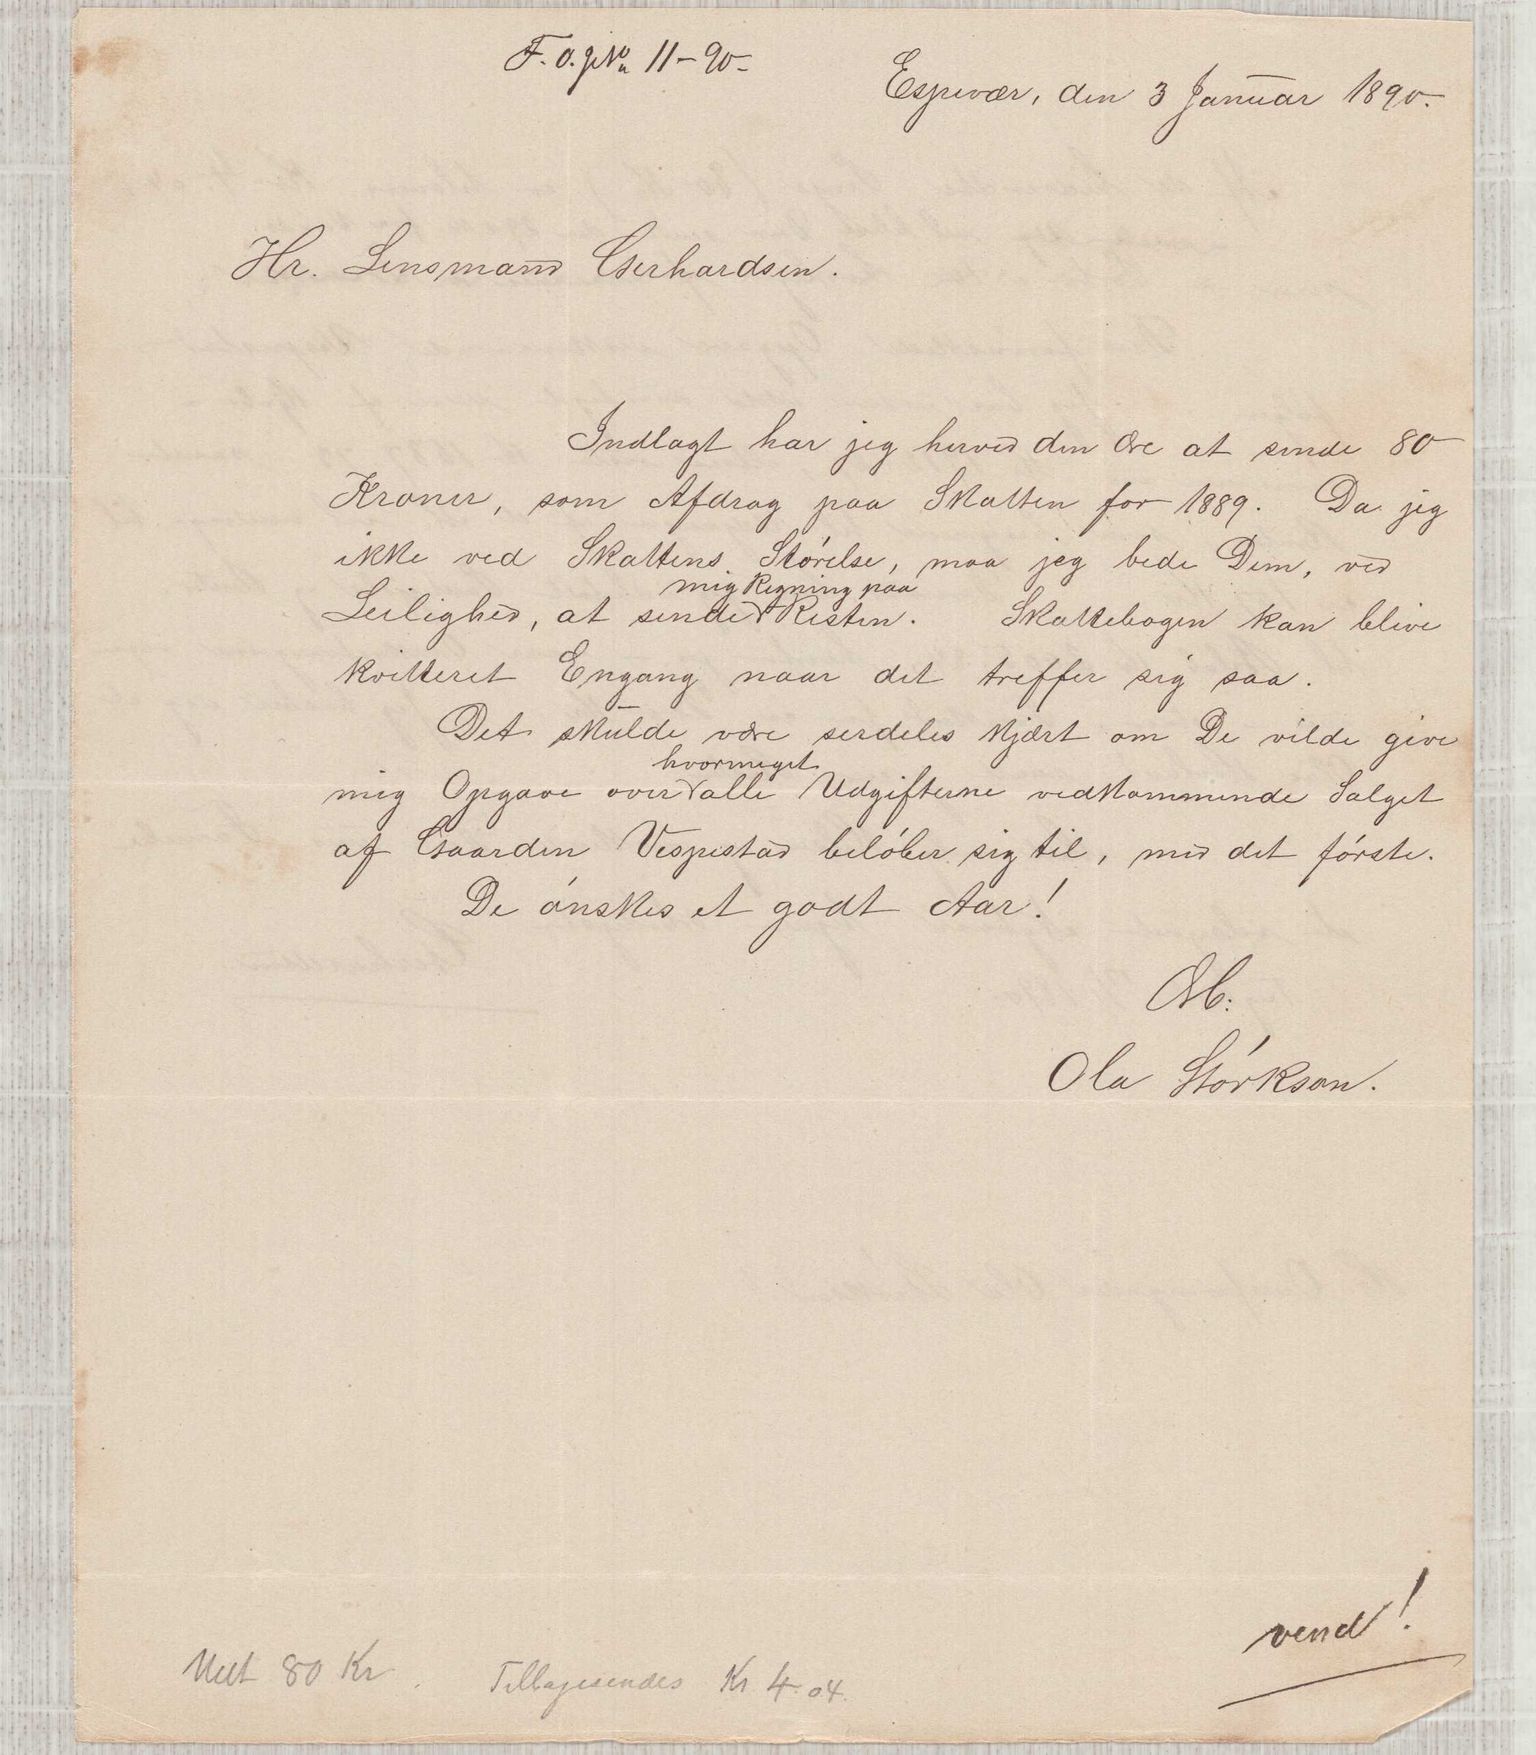 F. O. g. No 11-90-
Espevær, den 3 Januar 1890.
Hr. Lensmand Gerhardsen.
Indlagt har jeg herved den Ære at sende 80
Kroner, som Afdrag paa Skatten for 1889. Da jeg
ikke ved Skattens Störelse, maa jeg bede Dem, ved
mig Regning paa
Leilighed, at sende Resten. Skattebogen kan blive
kvitteret Engang naar det treffer sig saa.
Det skulde være serdeles kjært om De vilde give
hvormeget
mig Opgave over alle Udgifterne vedkommende Salget
af Gaarden Vespestad belóber sig til, med det fórste.
De ónskes et godt Aar!
Ærb.
Ola Stórkson.
vend!
Medt 80 Kr. Tilbagesendes Kr 4.04.